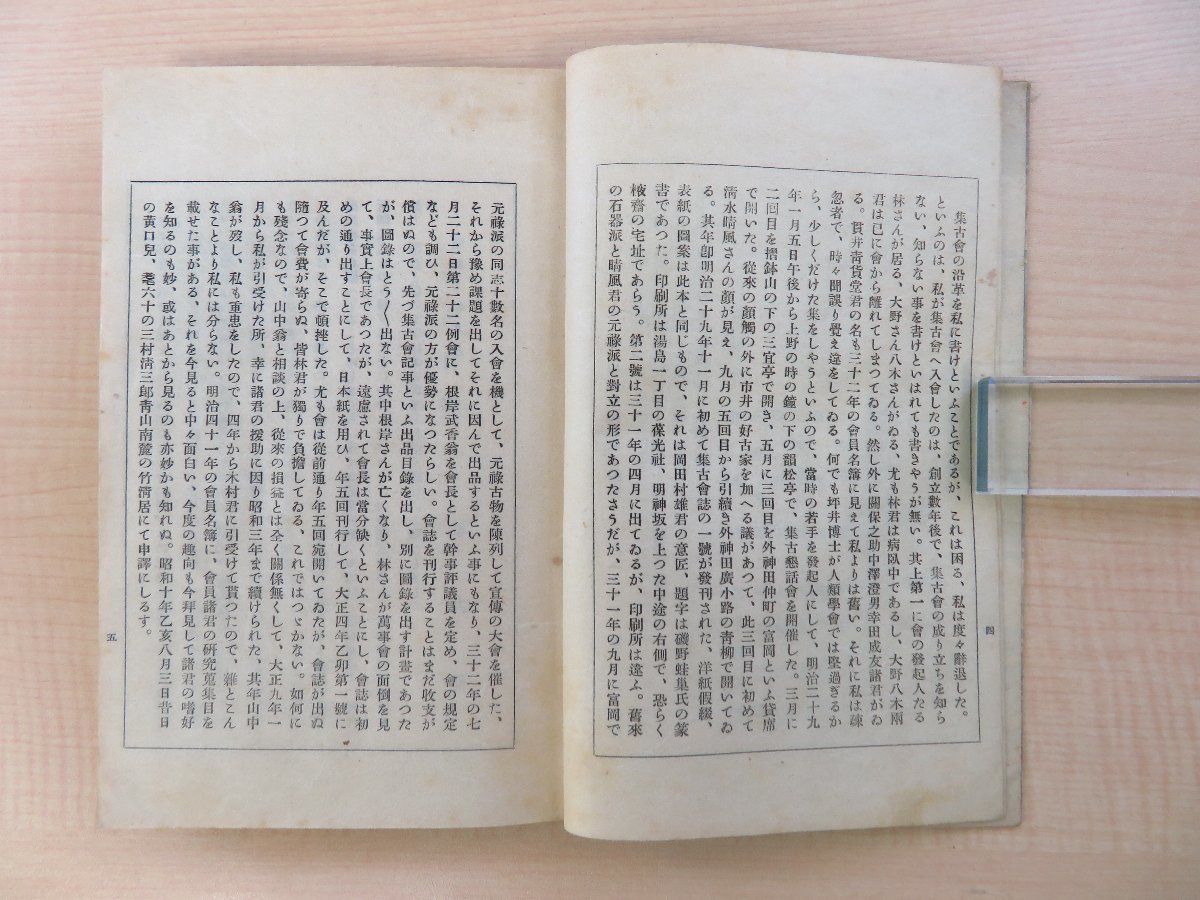 集古會の沿革を私に書けといふことであるが、これは困る、私は度々辭退した。
といふのは、私が集古會へ入會したのは、創立數年後で、集古會の成り立ちを知ら
ない、知らない事を書けといはれても書きやうが無い。其上第一に會の發起人たる
林さんが居る、大野さん八木さんがゐる、尤も林君は病臥中であるし、大野八木兩
君は已に會から離れてしまつてゐる。然し外に關保之助中澤澄男幸田成友諸君がゐ
る。貫井靑貨堂君の名も三十二年の會員名簿に見えて私よりは舊い。それに私は疎
忽者で、時々聞誤り覺え違をしてゐる。何でも坪井博士が人類學會では堅過ぎるか
ら、少しくだけた集をしやうといふので、當時の若手を發起人にして、明治二十九
年一月五日午後から上野の時の鐘の下の韻松亭で、集古懇話會を開催した。三月に
二回目を摺鉢山の下の三宜亭で開き、五月に三回目を外神田仲町の富岡といふ貸席
で開いた。從來の顏觸の外に市井の好古家を加へる議があつて、此三回目に初めて
淸水晴風さんの顏が見え、九月の五回目から引續き外神田廣小路の靑柳で開いてゐ
る。其年卽明治二十九年十一月に初めて集古會誌の一號が發刊された、洋紙假綴、
表紙の圖案は此本と同じもので、それは岡田村雄君の意匠、題字は磯野蛙巢氏の篆
書であつた。印刷所は湯島一丁目の葆光社、明神坂を上つた中途の右側で、恐らく
棭齋の宅址であらう。第二號は三十一年の四月に出てゐるが、印刷所は違ふ。舊來
の石器派と晴風君の元祿派と對立の形であつたさうだが、三十一年の九月に富岡で
四
元祿派の同志十數名の入會を機として、元祿古物を陳列して宣傳の大會を催した、
それから豫め課題を出してそれに因んで出品するといふ事にもなり、三十二年の七
月二十二日第二十二例會に、根岸武香翁を會長として幹事評議員を定め、會の規定
なども調ひ、元祿派の方が優勢になつたらしい。會誌を刊行することはまだ收支が
償はぬので、先づ集古會記事といふ出品目錄を出し、別に圖錄を出す計畫であつた
が、圖錄はとう〳〵出ない。其中根岸さんが亡くなり、林さんが萬事會の面倒を見
て、事實上會長であつたが、遠慮されて會長は當分缺くといふことにし、會誌は初
めの通り出すことにして、日本紙を用ひ、年五回刊行して、大正四年乙卯第一號に
及んだが、そこで頓挫した。尤も會は從前通り年五回宛開いてゐたが、會誌が出ぬ
隨つて會費が寄らぬ、皆林君が獨りで負擔してゐる、これではつゞかない。如何に
も殘念なので、山中翁と相談の上、從來の損益とは全く關係無くして、大正九年一
月から私が引受けた所、幸に諸君の援助に因り昭和三年まで續けられた、其年山中
翁が歿し、私も重患をしたので、四年から木村君に引受けて貰つたので、雜とこん
なことより私には分らない。明治四十一年の會員名簿に、會員諸君の硏究蒐集目を
載せた事がある、それを今見ると中々面白い、今度の趣向も今拜見して諸君の嗜好
を知るのも妙、或はあとから見るのも亦妙かも知れぬ。昭和十年乙亥八月三日昔日
の黃口兒、耄六十の三村淸三郎靑山南麓の竹淸居にて申譯にしるす。
五